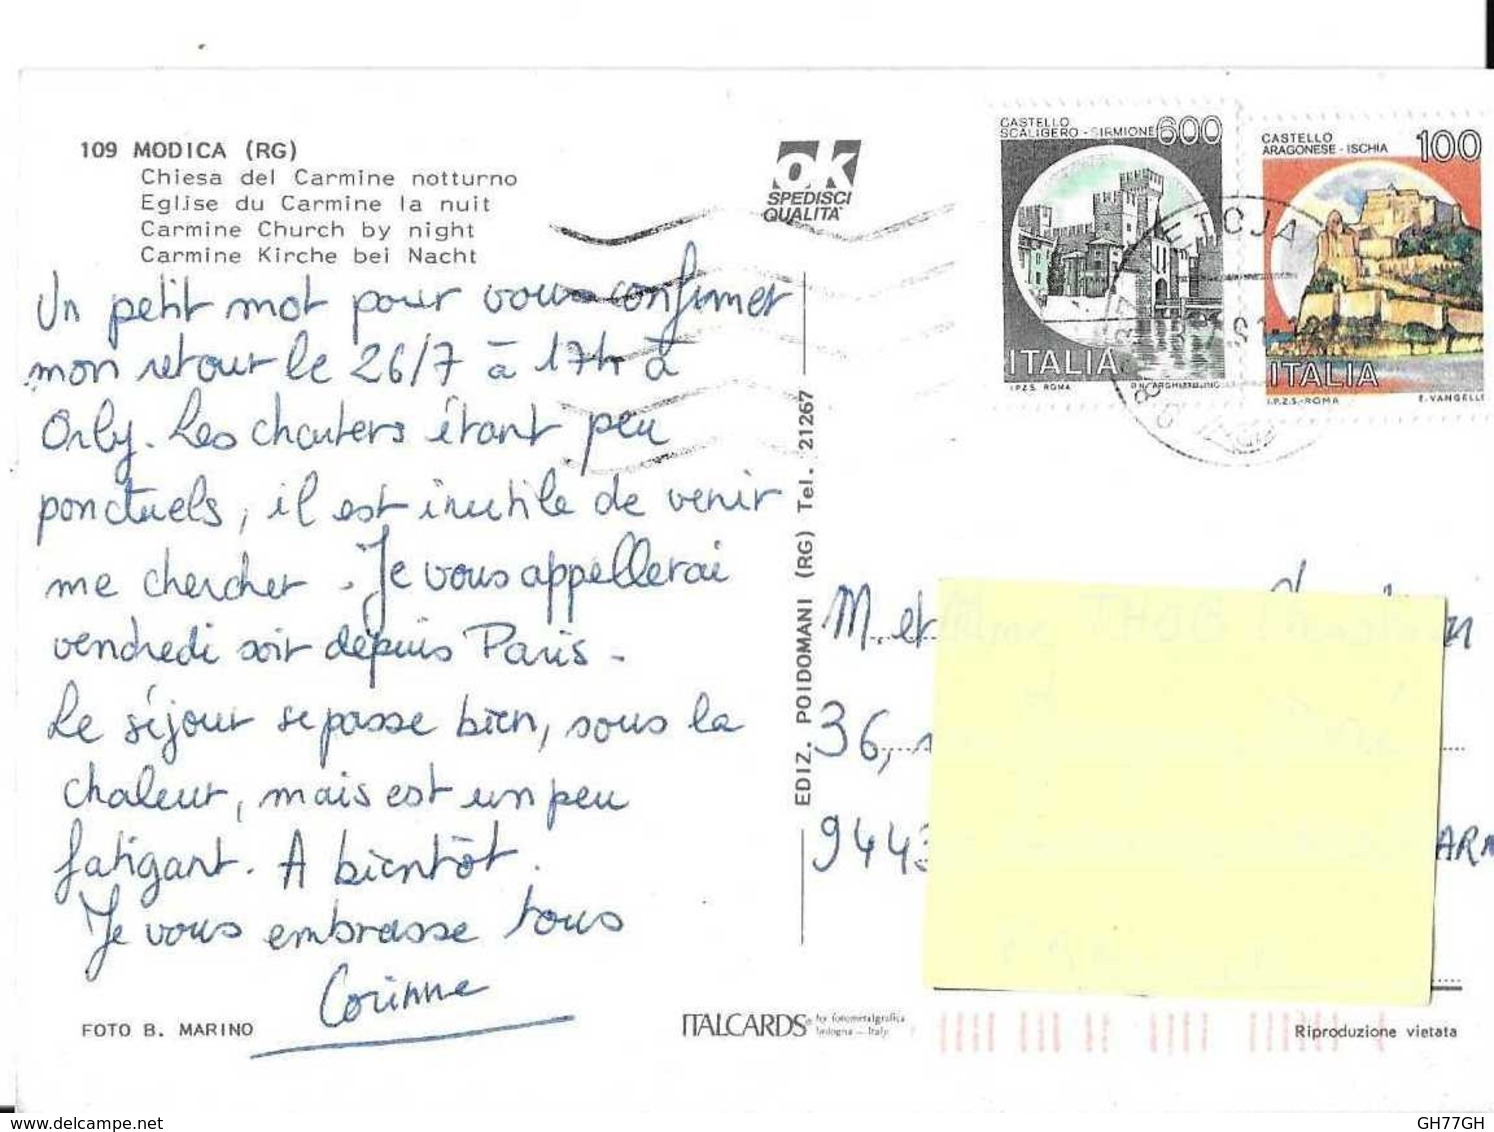 109 MODICA (RG)
Chiesa del Carmine notturno
Eglise du Carmine la nuit
Carmine Church by night
Carmine Kirche bei Nacht
Un petit mot pour vous confirmer
mon retour le 26/7 à 17h à
Orly. Les charters étant peu
ponctuels, il est inutile de venir
me chercher. Je vous appellerai
vendredi soir depuis Paris.
Le séjour se passe bien, sous la
chaleur, mais est un peu
fatigant. A bientôt.
Je vous embrasse tous
Corinne
FOTO B. MARINO
ok
SPEDISCI
QUALITA'
EDIZ. POIDOMANI (RG) Tel. 21267
ITALCARDS by fotometalgrafica
bologna - Italy
CASTELLO
SCALIGERO - SIRMIONE 600
ITALIA
I.P.Z.S. ROMA
CASTELLO
ARAGONESE - ISCHIA 100
ITALIA
I.P.Z.S. - ROMA E. VANGELLI
M. et
36,
9443
Riproduzione vietata
GH77GH